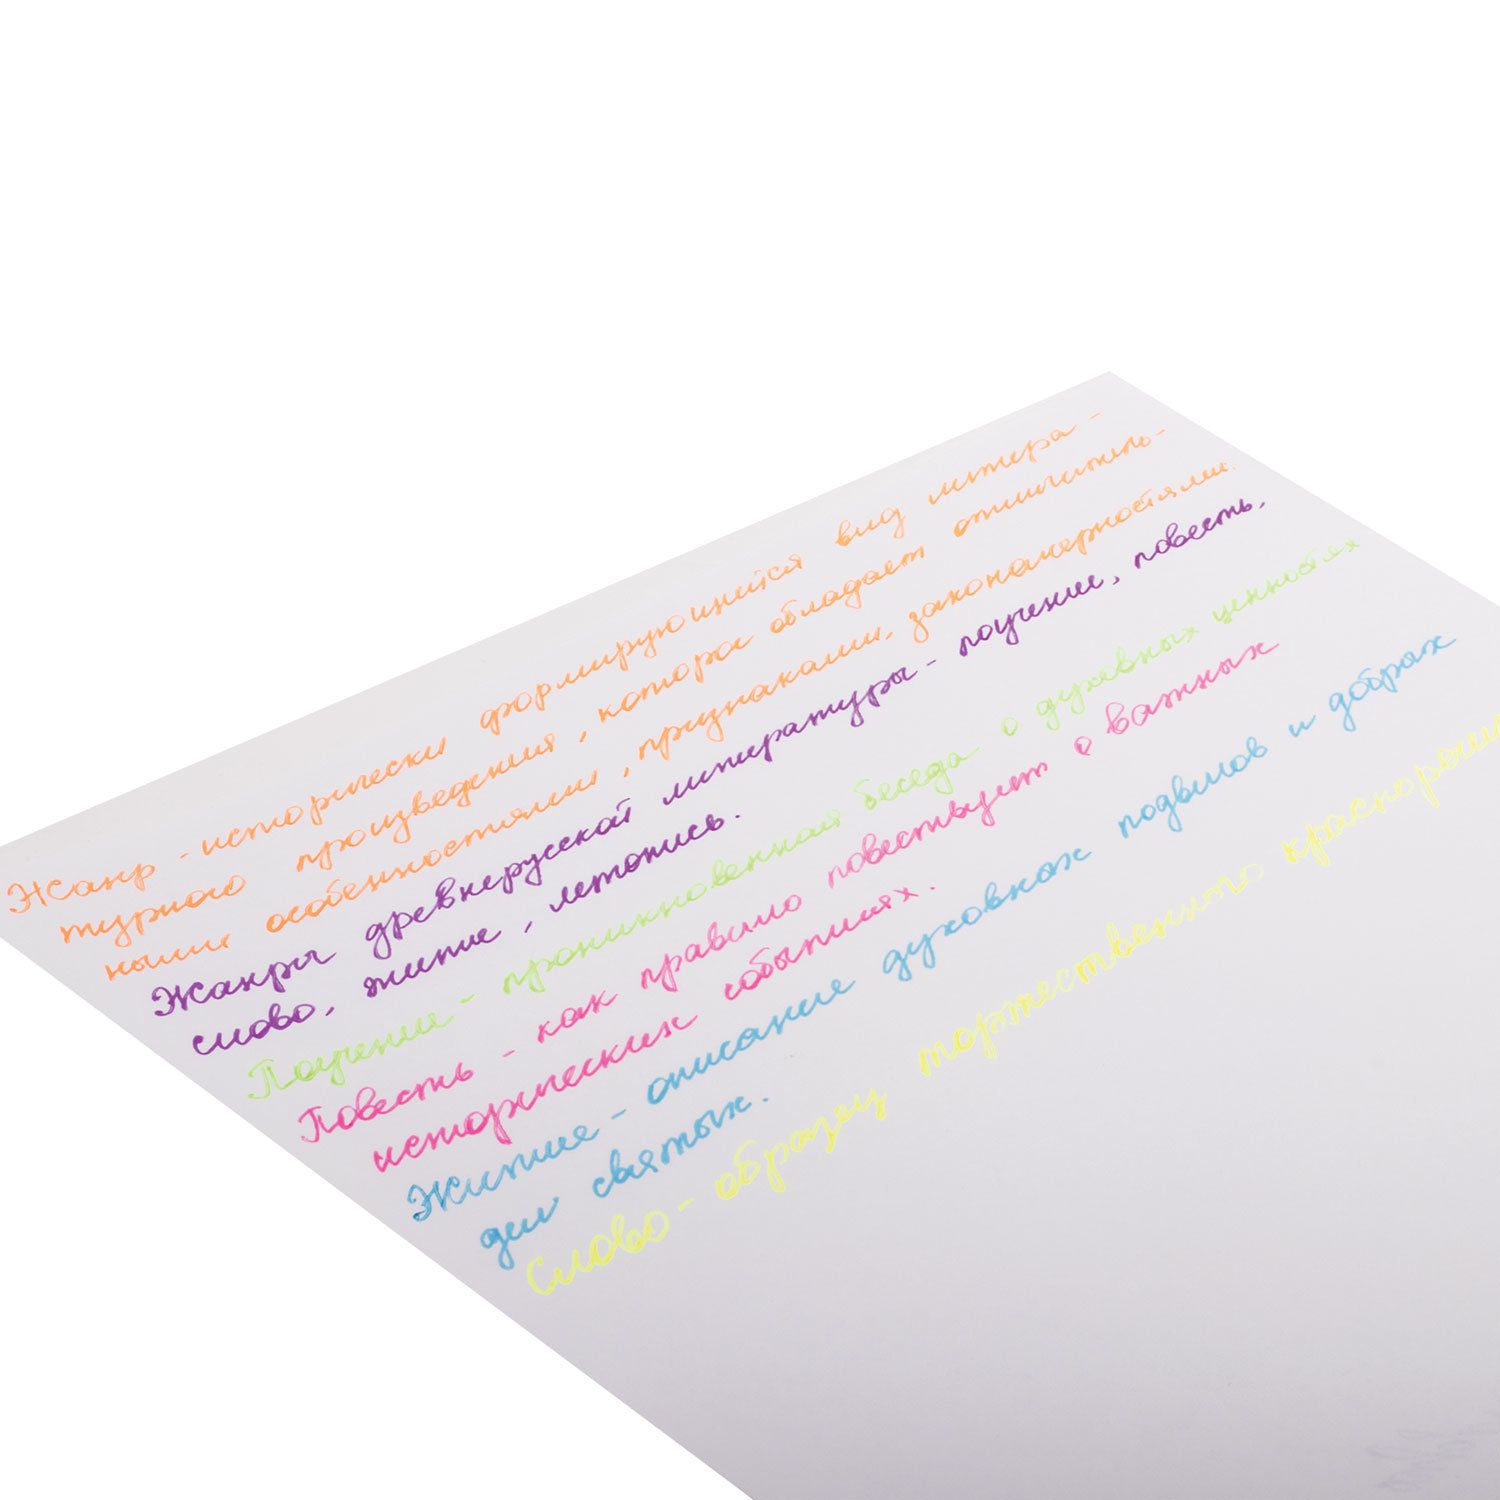 Жанр - исторически формирующийся вид литера -
турного произведения, которое обладает отличитель-
ными особенностями, признаками, закономерностями.
Жанры древнерусской литературы - поучение, повесть,
слово, житие, летопись.
Поучение - проникновенная беседа о духовных ценностях
Повесть - как правило повествует о важных
исторических событиях.
Житие - описание духовных подвигов и добрых
дел святых.
Слово - образец торжественного красноречия